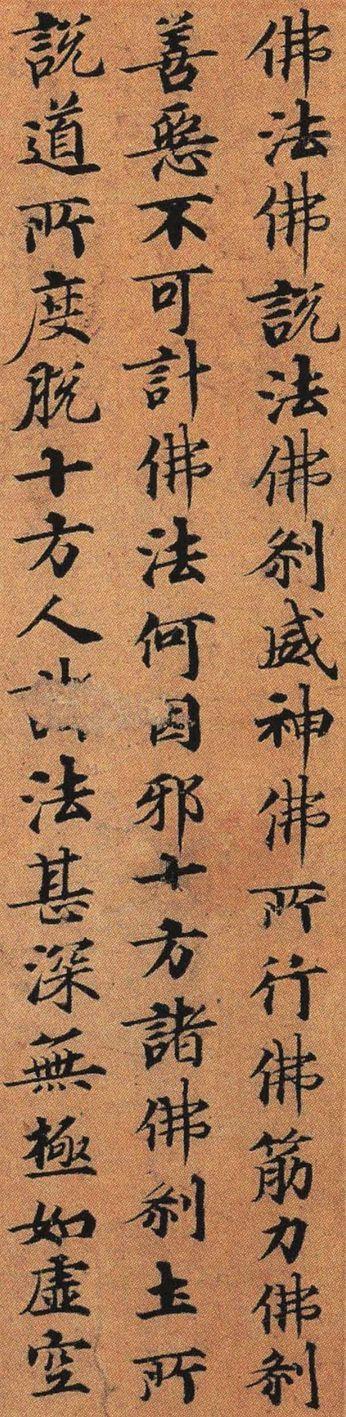 佛法佛說法佛刹威神佛所行佛筋力佛刹
善惡不可計佛法何因邪十方諸佛刹土所
說道所度脫十方人法甚深無極如虛空